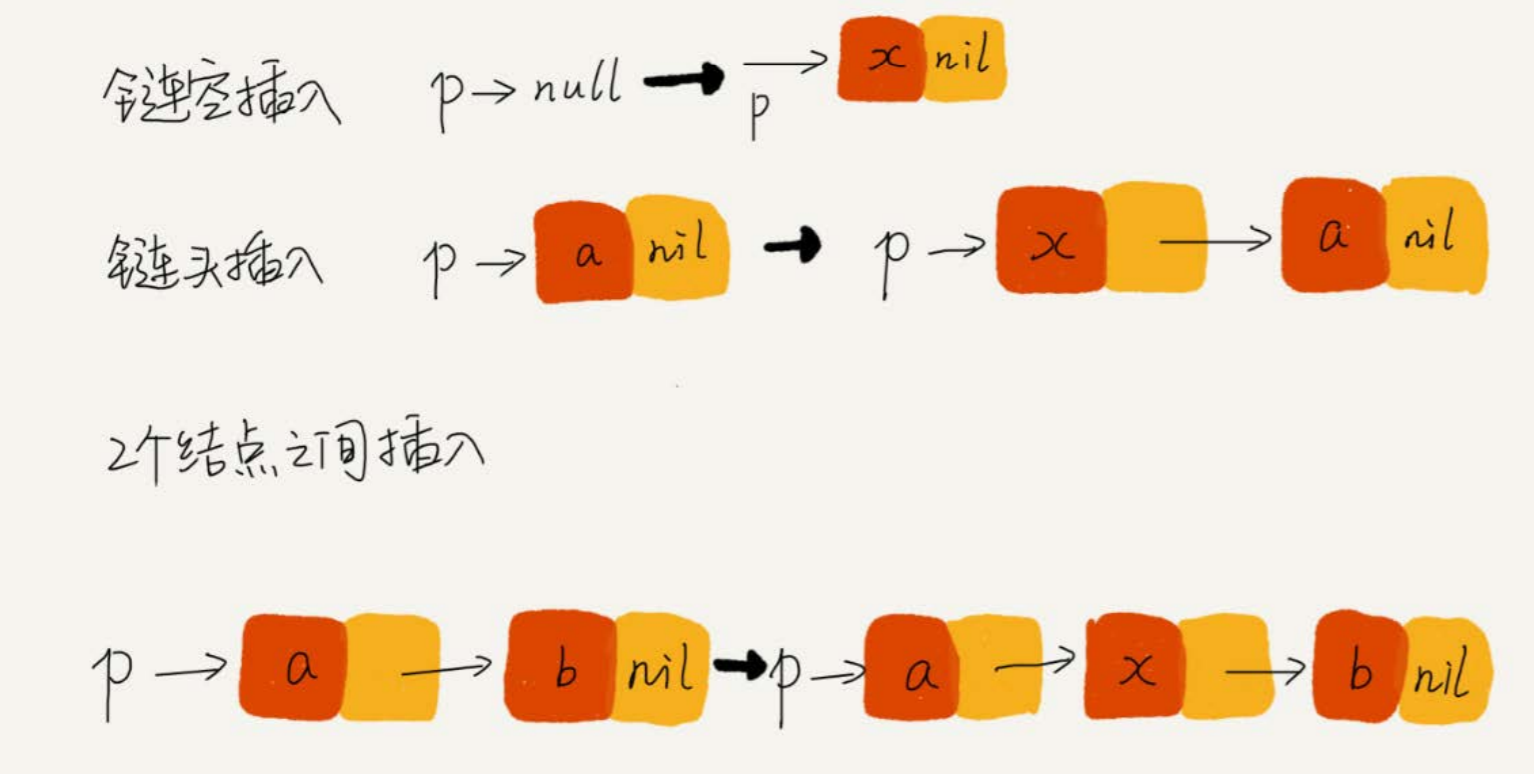 链空插入 p→null → p → x nil
链头插入 p → a nil → p → x → a nil
2个结点之间插入
p → a → b nil → p → a → x → b nil